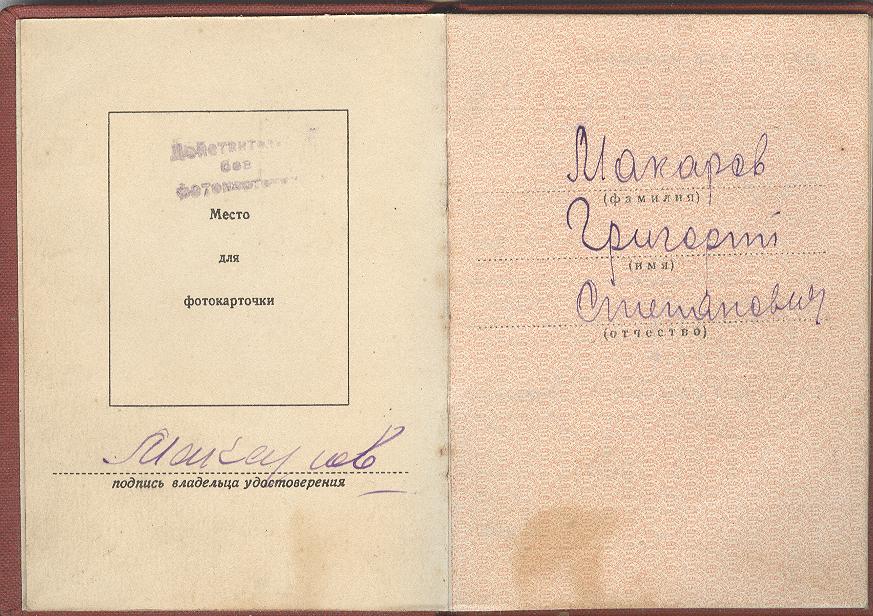 Действител
без
фотокарточки
Место
для
фотокарточки
Макаров
подпись владельца удостоверения
Макаров
(фамилия)
Григорий
(имя)
Степанович
(отчество)